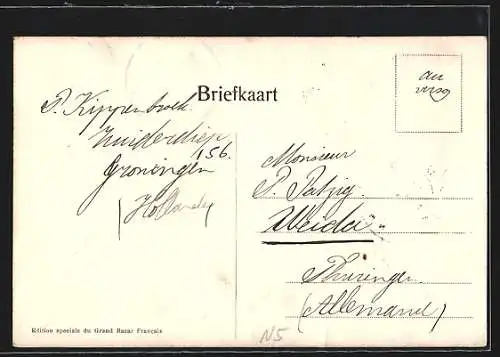 Briefkaart
au
verso
P. Kippenbroek
Zuiderdiep
156.
Groningen
(Holland)
Monsieur
P. Patzig.
Weida
Thuringen
(Allemand)
Edition speciale du Grand Bazar Français
N5